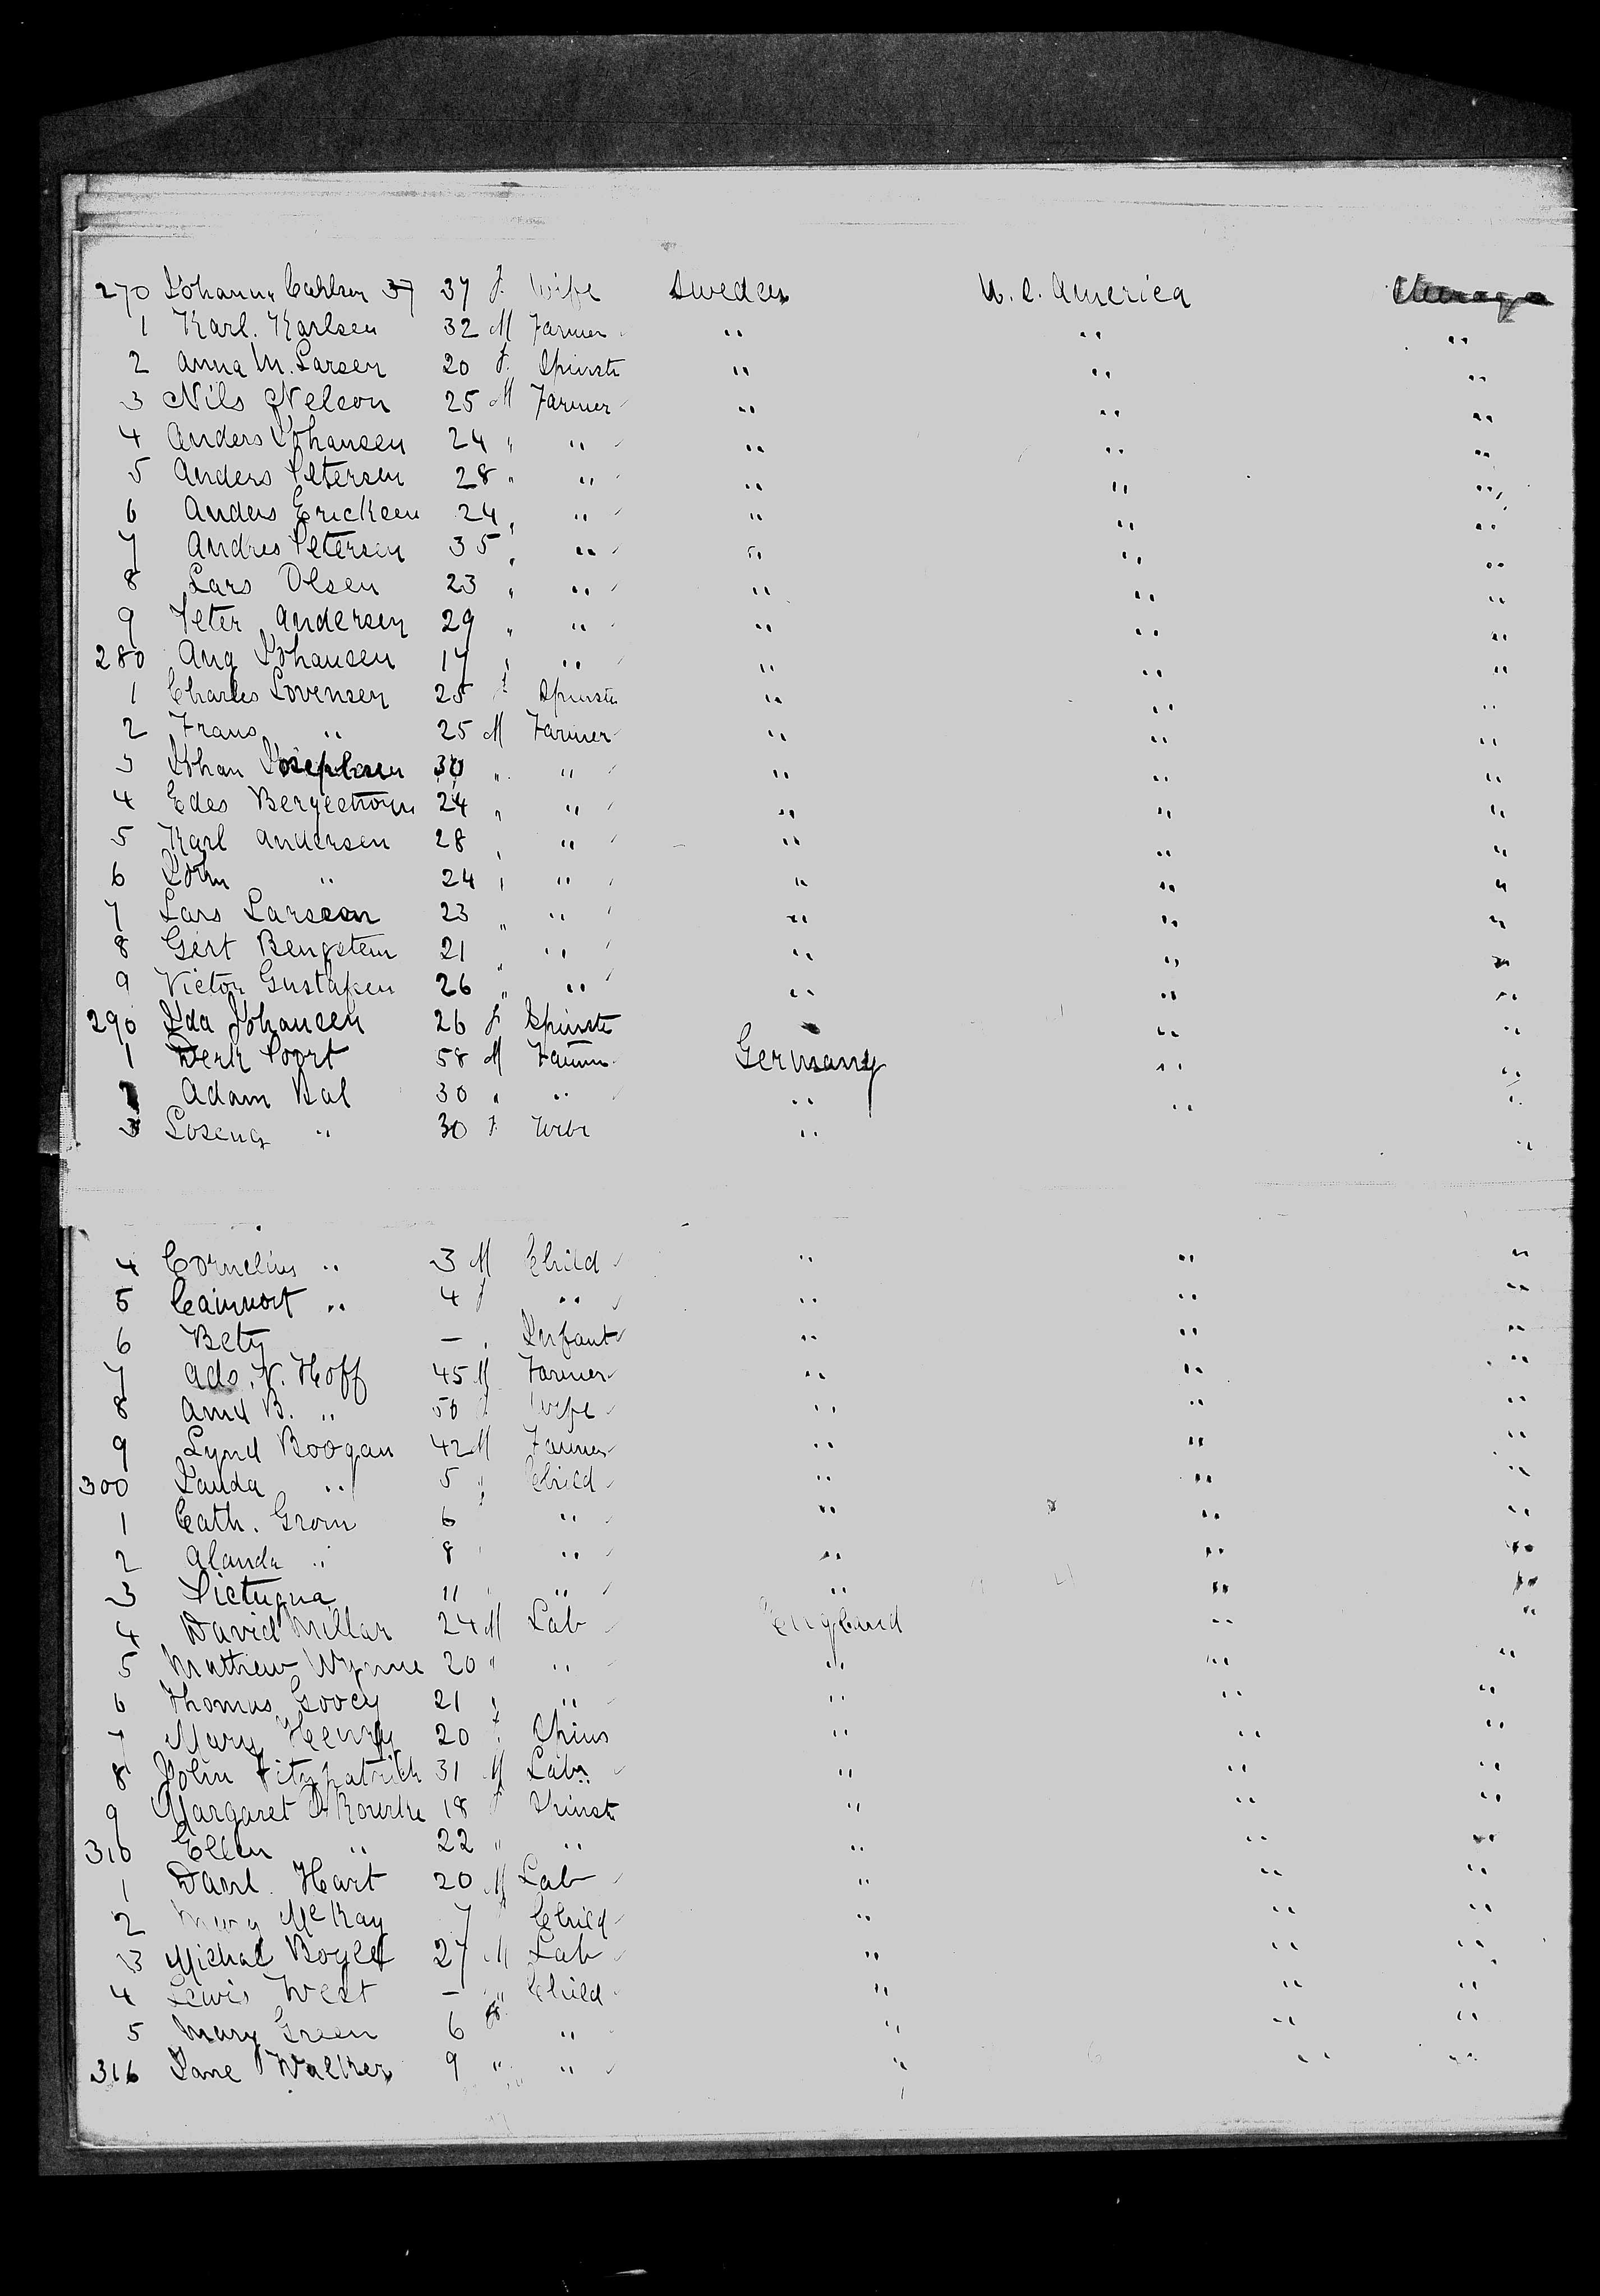 270 Johanna Carlsen 37 37 f. Wife Sweden U. S. America
1 Karl. Karlsen 32 M Farmer " " "
2 Anna M. Larsen 20 f. Spinstr " " "
3 Nils Nelson 25 M Farmer " " "
4 Anders Johansen 24 " " " " "
5 Anders Petersen 28 " " " " "
6 Anders Ericksen 24 " " " " "
7 Andres Petersen 35 " " " " "
8 Lars Olsen 23 " " " " "
9 Peter Andersen 29 " " " " "
280 Aug Johansen 17 " " " " "
1 Charles Sovensen 25 f Spinstr " " "
2 Frans " 25 M Farmer " " "
3 Johan Josephsen 30 " " " " "
4 Edes Bergestrom 24 " " " " "
5 Karl Andersen 28 " " " " "
6 John " 24 " " " " "
7 Lars Larsson 23 " " " " "
8 Gert Bengsten 21 " " " " "
9 Victor Gustafsen 26 " " " " "
290 Ida Johansen 26 f Spinstr " " "
1 Derk Poort 58 M Farmer Germany " "
Adam Bal 30 " " " " "
3 " 30 f. Wife " "
4 Cornelius " 3 M Child " " "
5 " 4 f " " " "
6 Bety — " Infant " " "
7 Ads. V. Hoff 45 M Farmer " " "
8 B. " 50 f Wife " " "
9 Lynd Boogan 42 M Farmer " " "
300 Janda " 5 " Child " " "
1 Cath. Grom 6 " " " " "
2 Alanda " 8 " " " " "
3 Pietugna 11 " " " " "
4 David Millar 24 M Lab England " "
5 Mathew Wynne 20 " " " " "
6 Thomas Goocy 21 " " " " "
7 Mary Henry 20 f Spins " " "
8 John Fitzpatrick 31 M Labr " " "
9 Margaret O'Rourke 18 f Spinst " " "
310 Ellen " 22 " " " " "
1 Danl. Hart 20 M Lab " " "
2 Mary McKay 7 f Child " " "
3 Michal Boyle 27 M Lab " " "
4 Lewis West — " Child " " "
5 Mary Green 6 f " " " "
316 Jane Walker 9 " " " " "